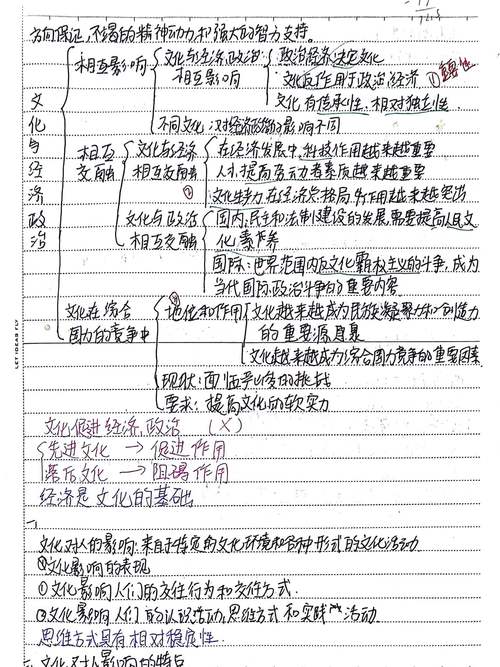 方向保证,不竭的精神动力和强大的智力支持。
文化与经济政治
相互影响
文化与经济政治
相互影响
政治经济决定文化
文化反作用于政治经济 ①重性
文化有传承性、相对独立性
不同文化:对经济政治的影响不同
相互交融
文化与经济
相互交融
在经济发展中,科技作用越来越重要
人才,提高劳动者素质越来越重要
文化生产力在经济总格局的作用越来越突出
文化与政治
相互交融
国内:民主和法制建设的发展,需要提高人民文
化素养
国际:世界范围内反文化霸权主义的斗争,成为
当代国际政治斗争的重要内容
文化在综合
国力的竞争中
地位和作用
文化越来越成为民族凝聚力和创造力
的重要源泉
文化越来越成为综合国力竞争的重要因素
现状:面临严峻的挑战
要求:提高文化的软实力
文化促进经济,政治 (X)
先进文化 → 促进作用
落后文化 → 阻碍作用
经济是文化的基础
一
文化对人的影响:来自于特定的文化环境和各种形式的文化活动
文化影响的表现
①文化影响人们的交往行为和交往方式.
②文化影响人们的认识活动,思维方式和实践活动.
思维方式具有相对稳定性.
二、文化对人影响的特点
LET IDEAS FLY